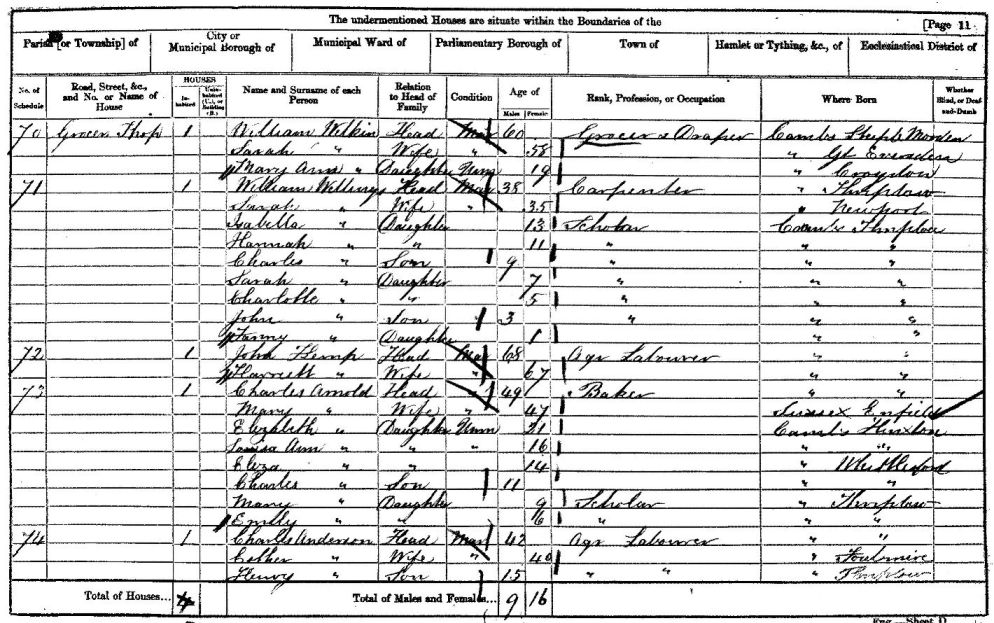 The undermentioned Houses are situate within the Boundaries of the [Page 11
Parish [or Township] of City or Municipal Borough of Municipal Ward of Parliamentary Borough of Town of Hamlet or Tything, &c., of Ecclesiastical District of
No. of Schedule Road, Street, &c., and No. or Name of House HOUSES Inhabited Uninhabited (U.), or Building (B.) Name and Surname of each Person Relation to Head of Family Condition Age of Males Females Rank, Profession, or Occupation Where Born Whether Blind, or Deaf-and-Dumb
70 Grocers Shop 1 William Wilkin Head Mar 60 Grocer & Draper Cambs Steeple Morden
Sarah " Wife " 58 " Gt Eversden
Mary Ann " Daughter Unm 19 " Croydon
71 1 William Head Mar 38 Carpenter " Thriplow
Sarah " Wife " 35 "
Isabella " Daughter 13 Scholar Cambs Thriplow
Hannah " " 11 " " "
Charles " Son 9 " " "
Sarah " Daughter 7 " " "
Charlotte " " 5 " " "
John " Son 3 " " "
Fanny " Daughter 1 " "
72 1 John Head Mar 68 Agr Labourer " "
Harriett " Wife " 67 " "
73 1 Charles Arnold Head " 49 Baker " "
Mary " Wife " 47 Enfield
Elizabeth " Daughter Unm 21 Cambs Hinxton
Louisa Ann " " " 16 " "
Eliza " " 14 " Whittlesford
Charles " Son 11 " "
Mary " Daughter 9 Scholar " Thriplow
Emily " " 6 " " "
74 1 Charles Anderson Head Mar 42 Agr Labourer " "
Esther " Wife " 40 " Foulmire
Henry " Son 15 " " " Thriplow
Total of Houses... 4 Total of Males and Females... 9 16
Eng.—Sheet D.